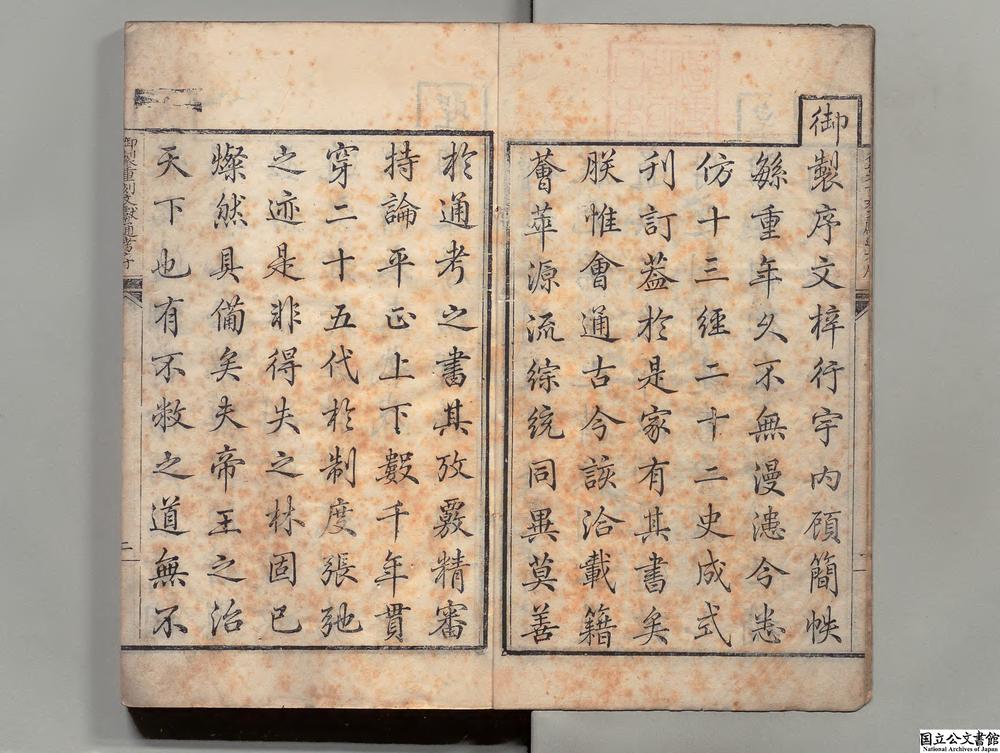 御
製序文梓行宇内顧簡帙
繇重年久不無漫漶今悉
仿十三經二十二史成式
刊訂葢於是家有其書矣
朕惟會通古今該洽載籍
薈萃源流綜统同異莫善
於通考之書其攷覈精審
持論平正上下數千年貫
穿二十五代於制度張弛
之迹是非得失之林固已
燦然具備矣夫帝王之治
天下也有不敝之道無不
二
国立公文書館
National Archives of Japan